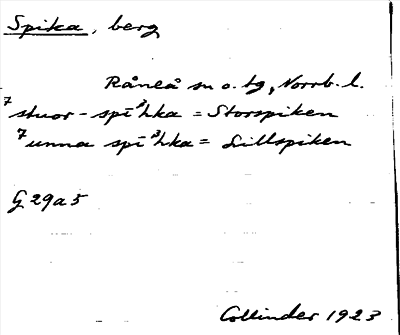 Spika, berg
Råneå sn o. tg, Norrb. l.
⁷stuor-spī³hka = Storspiken
⁷unna spī³hka = Lillspiken
G 29a5
Collinder 1923